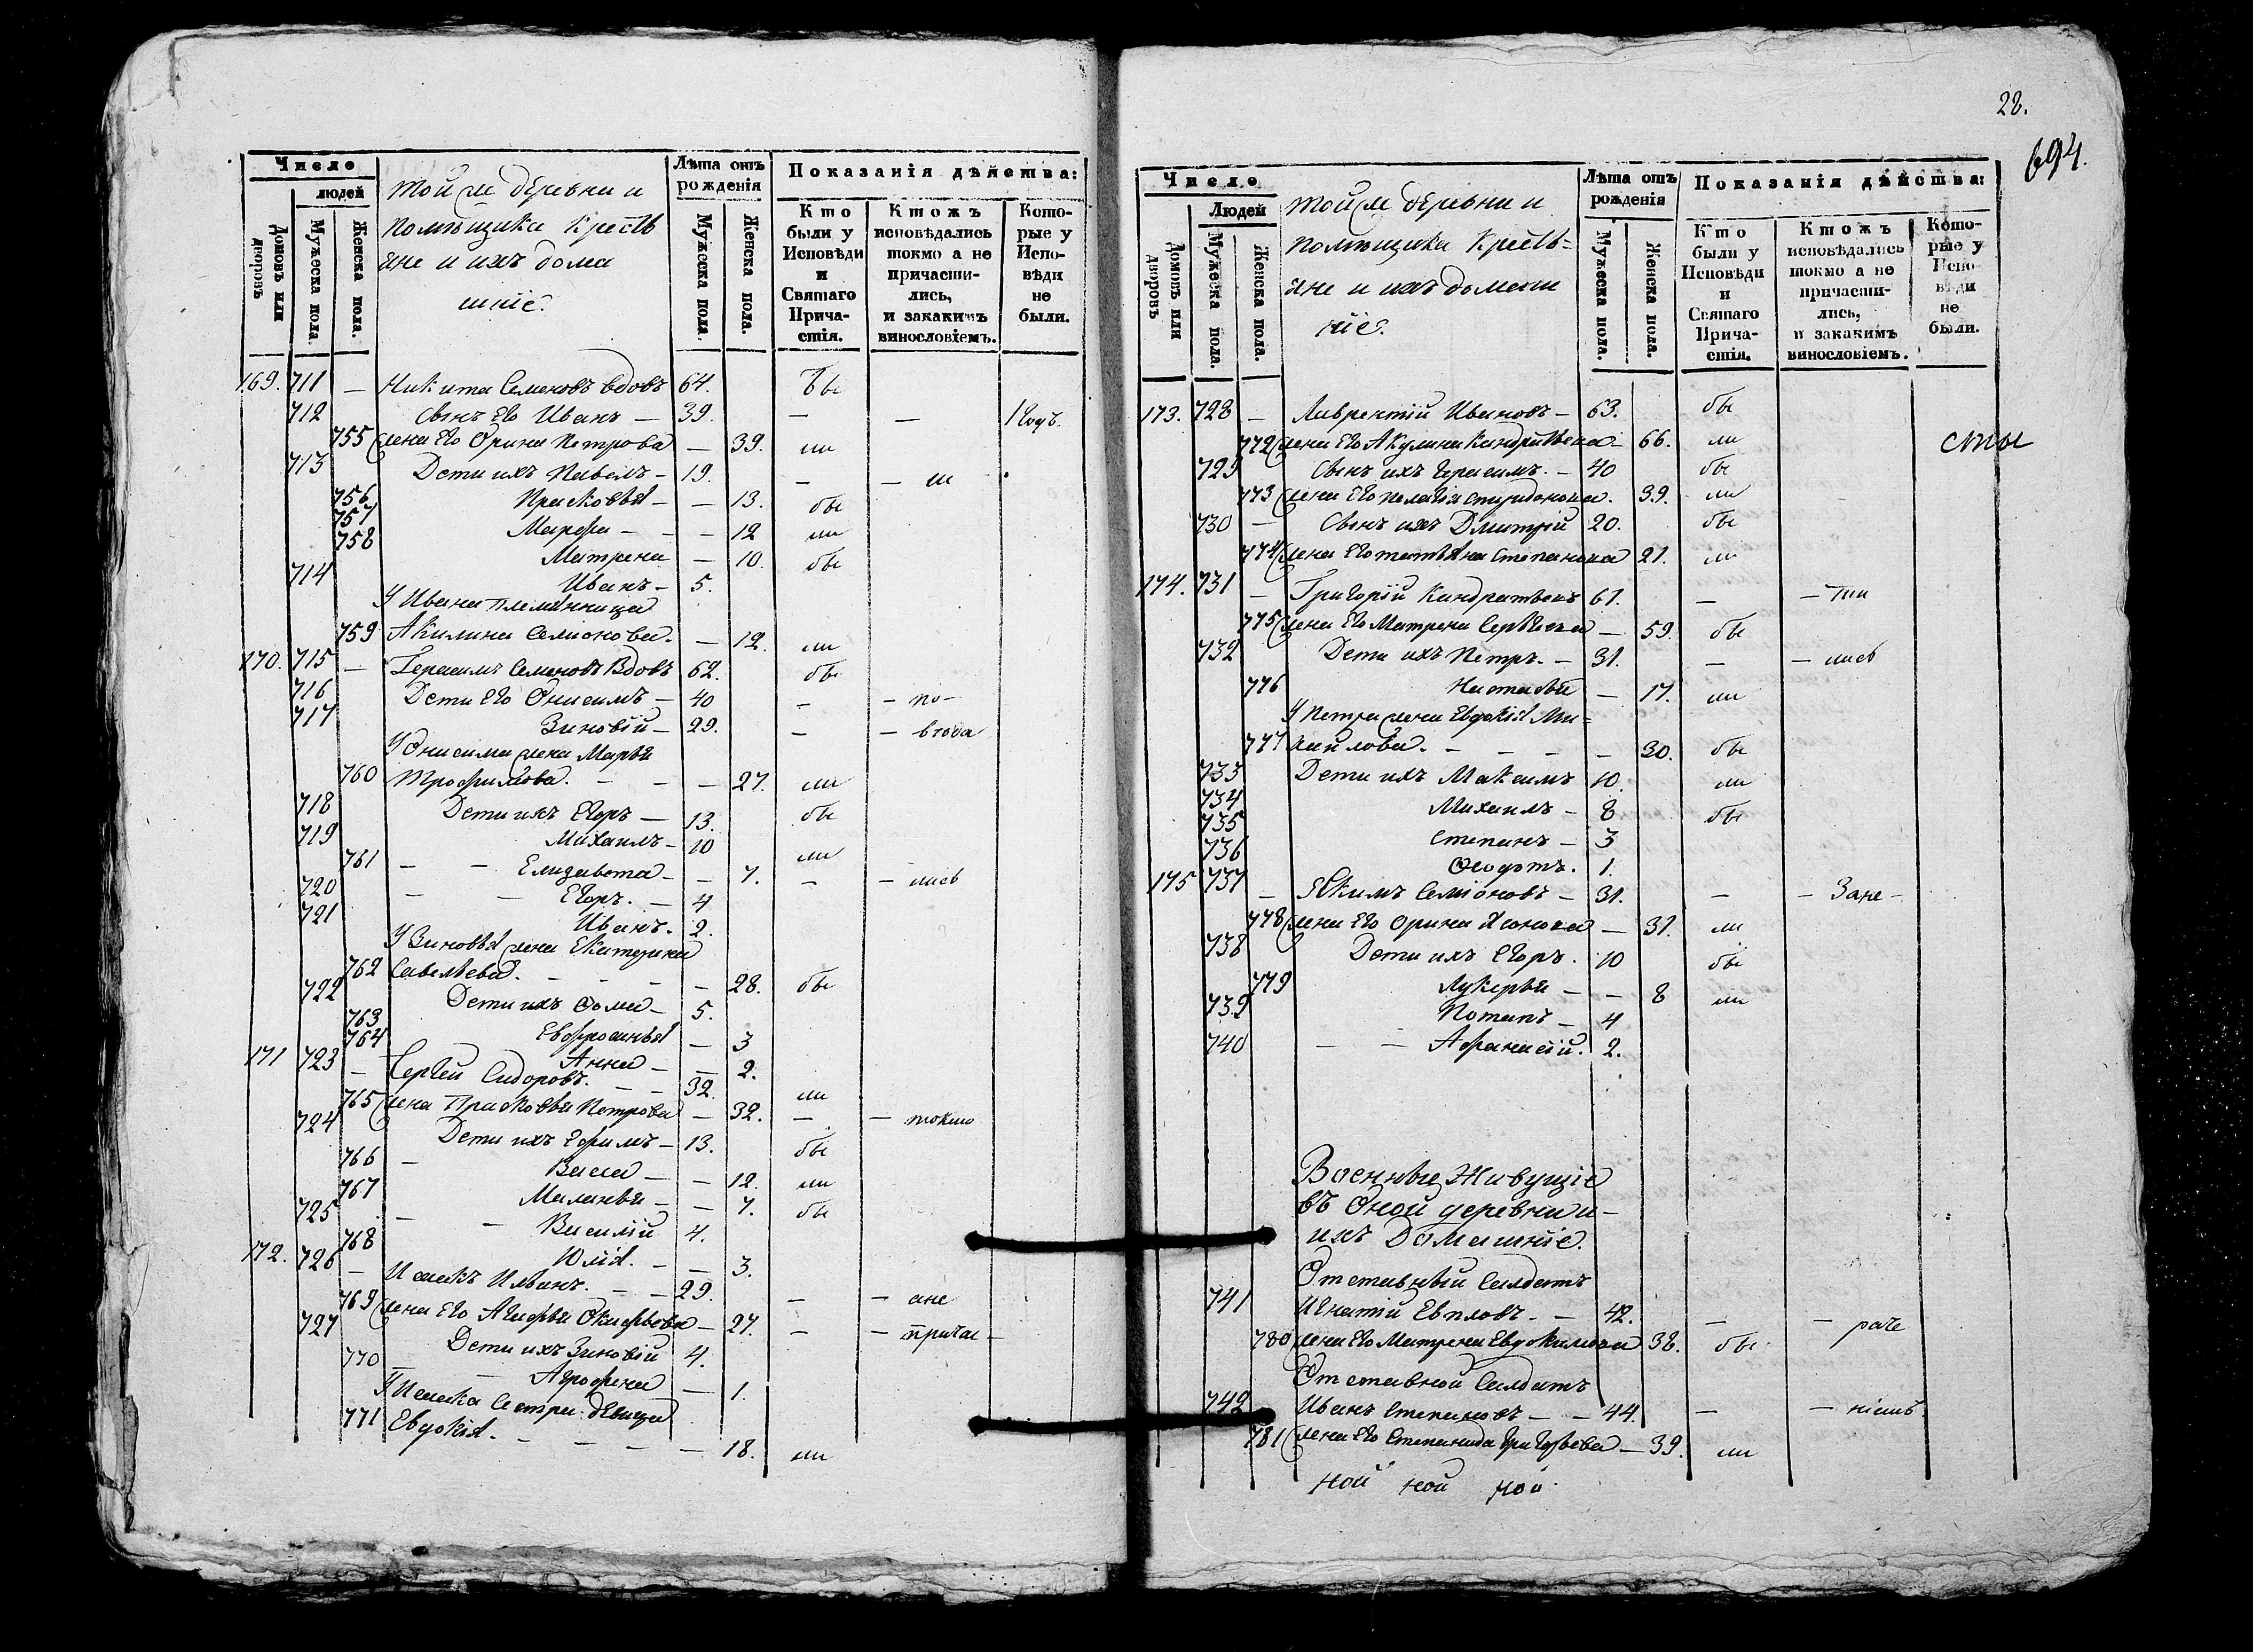 Число
людей
Домовъ или дворовъ
Мужеска пола.
Женска пола.
той же деревни и
помѣщика Кресть
яне и ихъ дома
шніе.
Лѣта отъ рожденія
Мужеска пола.
Женска пола.
Показанія дѣйства:
Кто были у Исповѣди и Святаго Прича-стія.
Ктожъ исповѣдались токмо а не причасти-лись, и закакимъ винословіемъ.
Кото-рые у Испо-вѣди не были.
169. 711 — Никита Семеновъ вдовъ 64. бы
712 Сынъ Его Иванъ — 39. — — 1 Годъ.
755 жена Его Орина Петрова — 39. ли
713 Дети ихъ Павелъ — 19. — — ли
756 Прасковья — — 13. бы
757 Марфа — — 12 ли
758 Матрена — 10. бы
714 Иванъ — 5.
У Ивана племянница
759 Акилина Семионова. — 12. ли
170. 715 — Герасимъ Семеновъ Вдовъ 62. бы
716 Дети Его Онисимъ — 40 — — по —
717 Зиновій — 29. — — втова
У Онисима жена Марья
760 Трофимова. — — — 27. ли
718 Дети ихъ Егоръ — 13. бы
719 Михаилъ — 10 ли
761 — — Елизавета — — 7. — — лись
720 — — Егоръ. — 4
721 Иванъ. 2.
У Зиновья жена Екатерина
762 Савельева. — — — — 28. бы
722 Дети ихъ Фома — 5.
763 Евфросинья — 3
764 Анна — — 2.
171 723 — Сергей Сидоровъ. — — 32. ли
765 жена Прасковья Петрова — 32. — — токмо
724 Дети ихъ Ефимъ — 13. бы
766 — Васса — — 12. ли
767 Маланья — — 7. бы
725 — — Василій 4.
768 Юлія. — — 3.
172. 726 — Исаакъ Ильинъ. — — 29. — — ане
769 жена Его Агафья — 27. — — причас —
727 Дети ихъ Зиновій 4.
770 — — Аграфена — 1.
У Исаака Сестра девица
771 Евдокія. — — — — 18. ли
22.
694.
Число
Людей
Домовъ или дворовъ
Мужеска пола.
Женска пола.
той же деревни и
помѣщика Кресть=
яне и ихъ домаш
ніе.
Лѣта отъ рожденія
Мужеска пола.
Женска пола.
Показанія дѣйства:
Кто были у Исповѣди и Святаго Прича-стія.
Ктожъ исповѣдались токмо а не причасти-лись, и закакимъ винословіемъ.
Кото-рые у Испо-вѣди не были.
173. 728 — Лаврентій Ивановъ — 63. бы
772 жена Его Акулина Кандратьева — 66. ли сты
729 Сынъ ихъ Герасимъ. — 40 бы
773 жена Его Пелагія Спиридонова. 39. ли
730 — Сынъ ихъ Дмитрій 20. бы
774 жена Его татьяна Степанова 21. ли
174. 731 — Григорій Кандратьевъ 61. — — тии
775 жена Его Матрена Сергѣева — 59. бы
732 Дети ихъ Петръ. — 31. — — лись
776 Настасья — 17. ли
У Петра жена Евдокія Ми=
777 хайлова. — — — — 30. бы
733 Дети ихъ Максимъ 10. ли
734 Михаилъ — 8 бы
735 Степанъ — 3
736 Феодотъ. 1.
175 737 — Якимъ Семіоновъ — 31. — — Зане —
778 жена Его Орина — 31. ли
738 Дети ихъ Егоръ. 10 бы
779 Лукерья — — 8 ли
739 Потапъ — 4
740 — — Афанасій. 2.
Военные Живущіе
въ Оной деревни и —
ихъ Домашніе.
Отставный Салдатъ
741 Игнатій Евпловъ. — 42. — — раче
780 жена Его Матрена Евдокимова 38. бы
Отставной Салдатъ
742 Иванъ Степановъ — — 44. — — ніемъ
781 жена Его Степанида Григорьева — 39. ли
ной ной ной